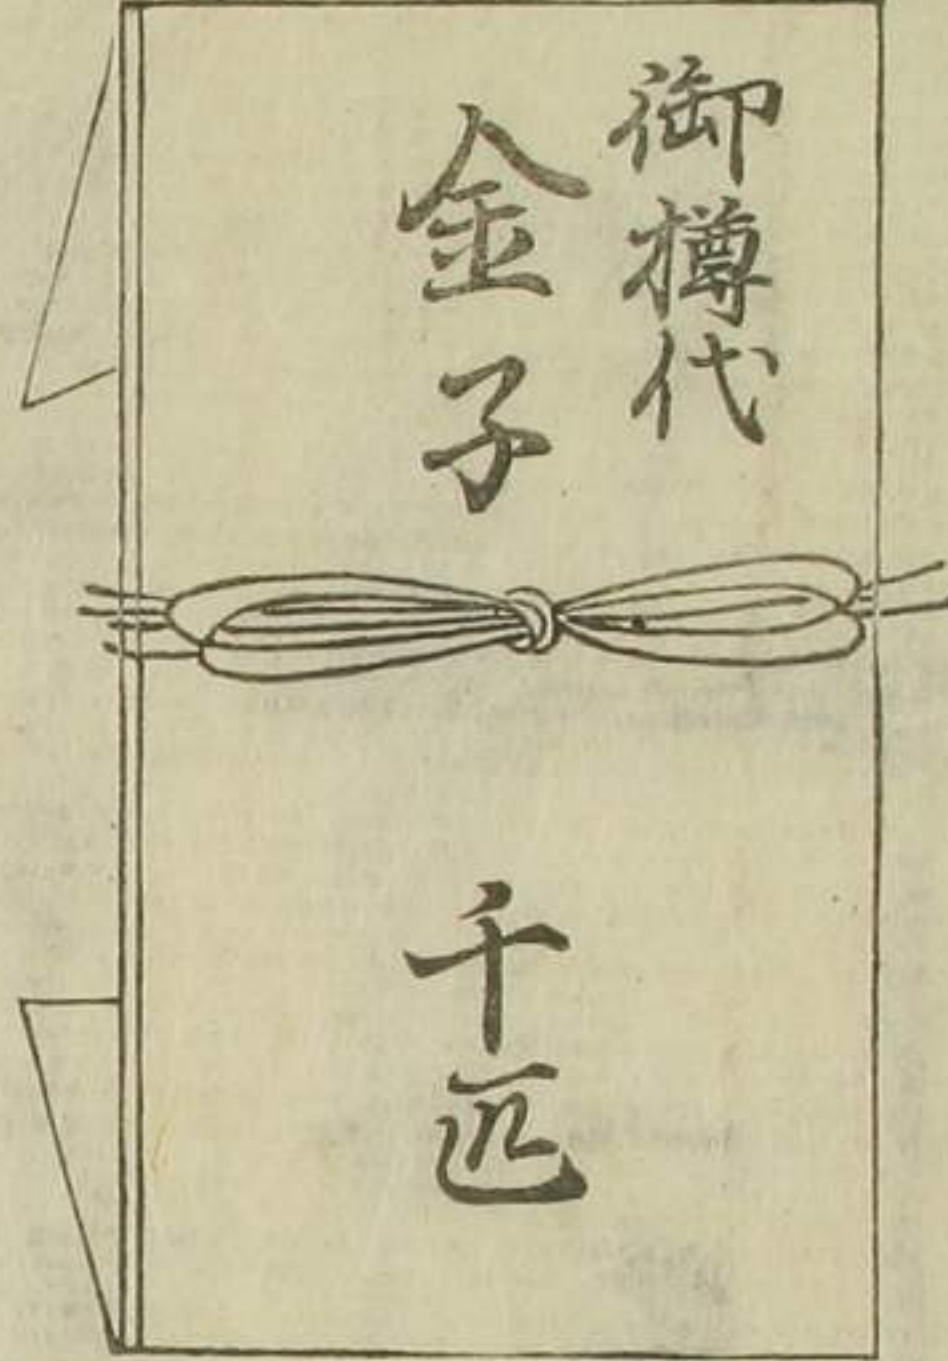 御樽代
金子
千匹